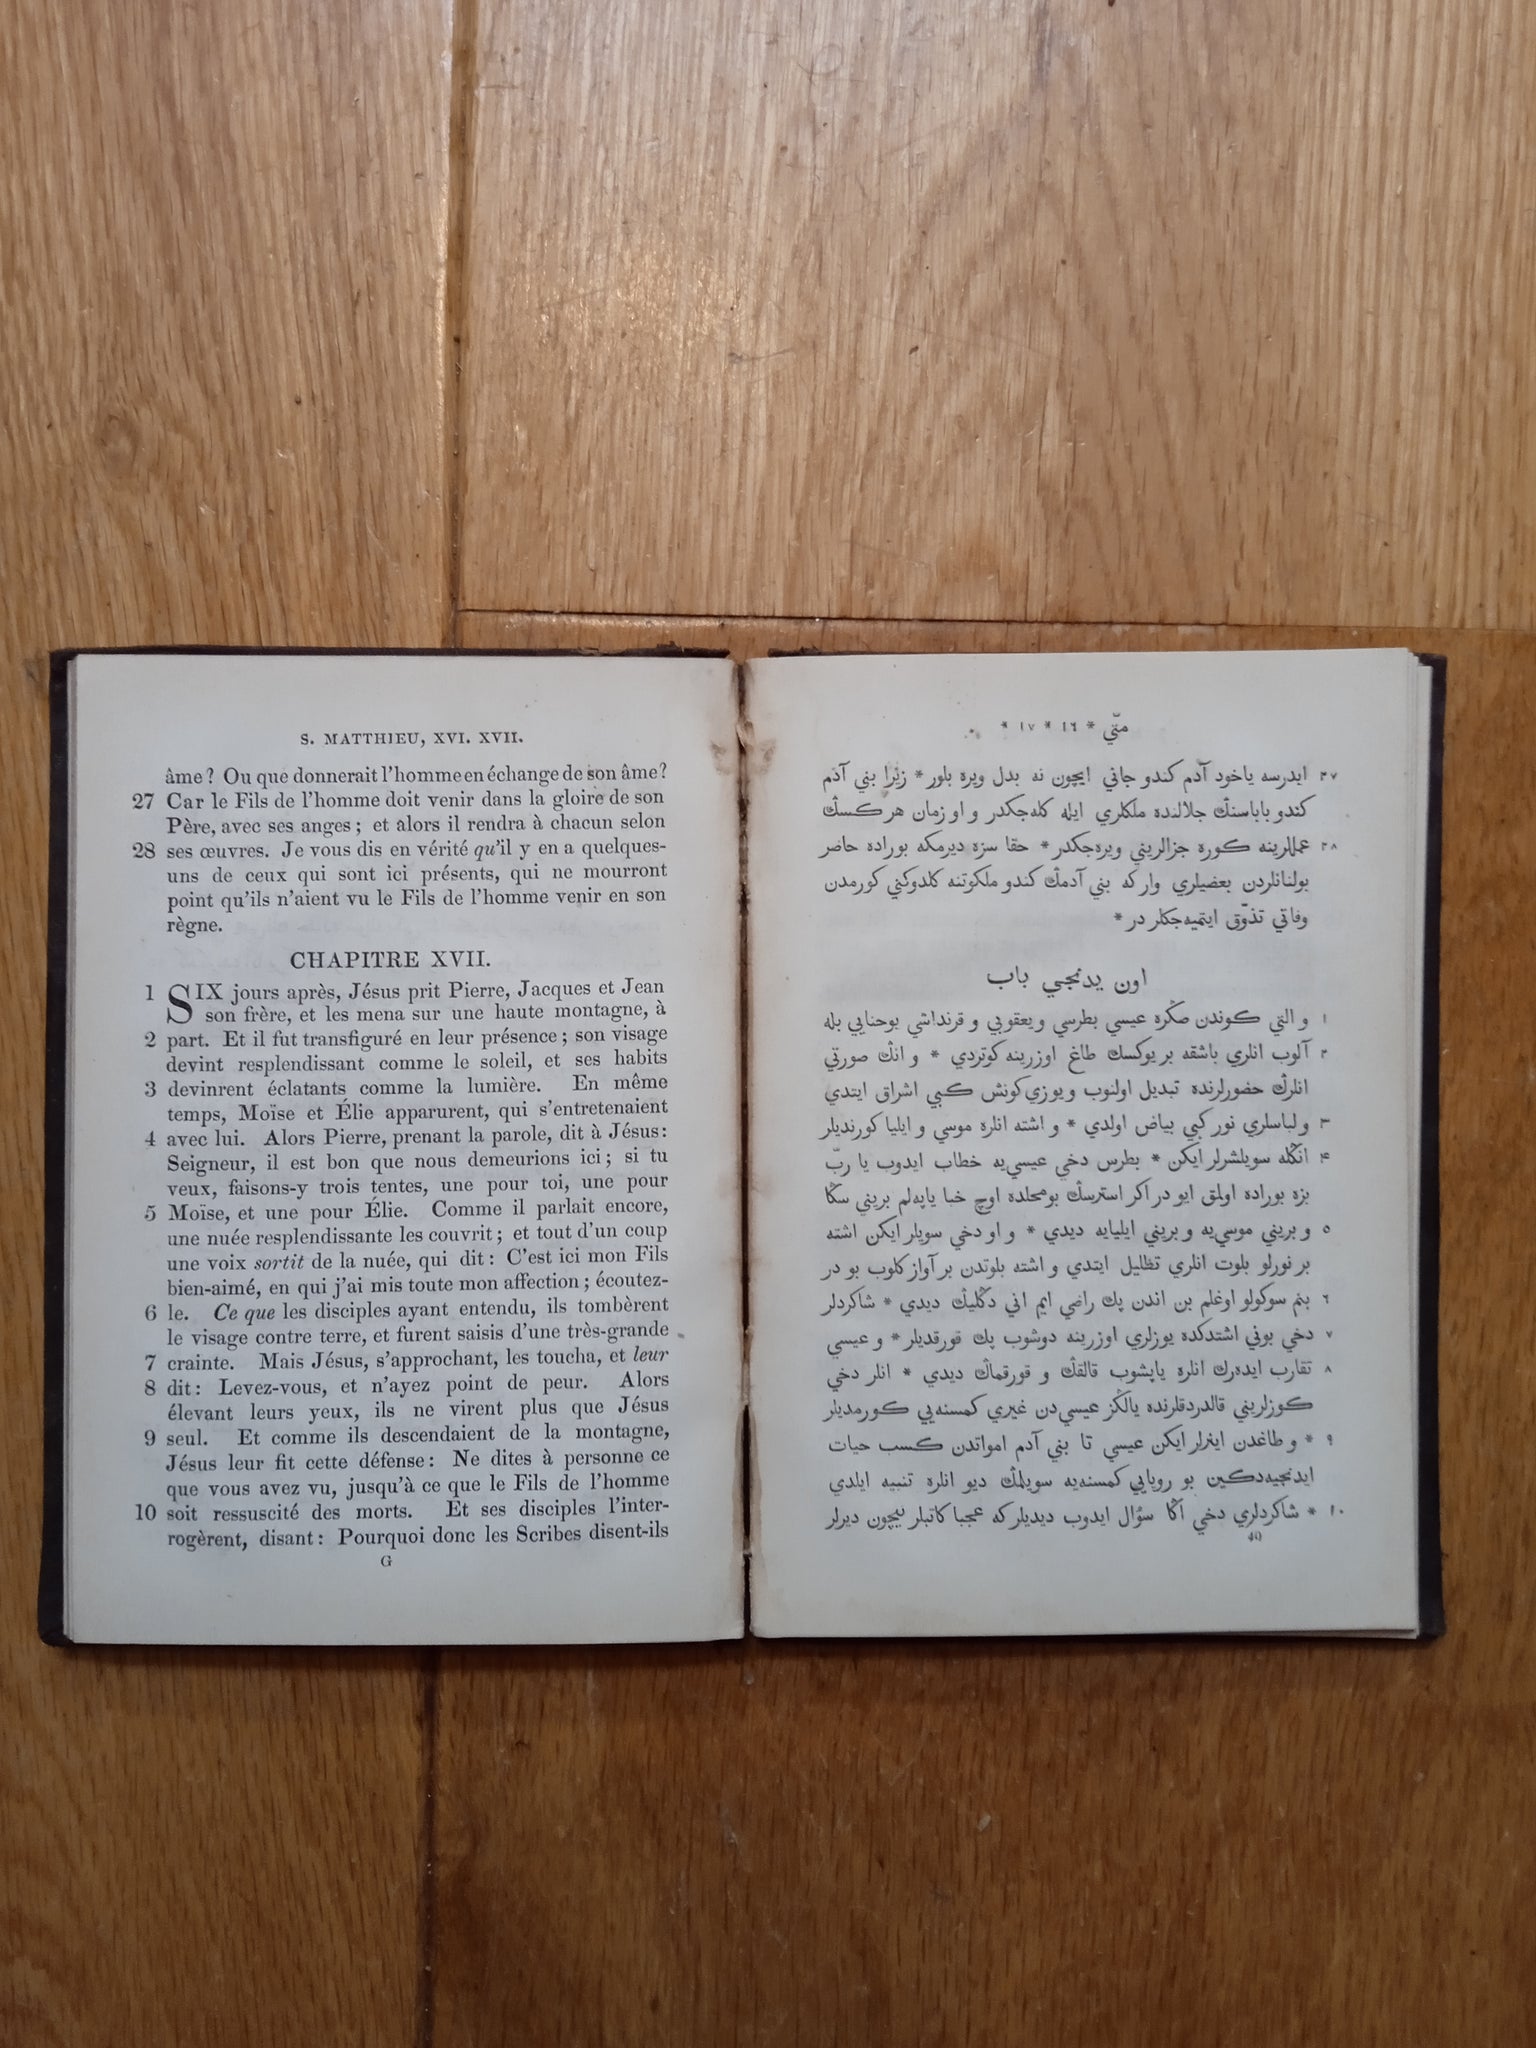 S. MATTHIEU, XVI. XVII.
âme? Ou que donnerait l'homme en échange de son âme?
27 Car le Fils de l'homme doit venir dans la gloire de son
Père, avec ses anges; et alors il rendra à chacun selon
28 ses œuvres. Je vous dis en vérité qu'il y en a quelques-
uns de ceux qui sont ici présents, qui ne mourront
point qu'ils n'aient vu le Fils de l'homme venir en son
règne.
CHAPITRE XVII.
1 SIX jours après, Jésus prit Pierre, Jacques et Jean
son frère, et les mena sur une haute montagne, à
2 part. Et il fut transfiguré en leur présence; son visage
devint resplendissant comme le soleil, et ses habits
3 devinrent éclatants comme la lumière. En même
temps, Moïse et Élie apparurent, qui s'entretenaient
4 avec lui. Alors Pierre, prenant la parole, dit à Jésus:
Seigneur, il est bon que nous demeurions ici; si tu
veux, faisons-y trois tentes, une pour toi, une pour
5 Moïse, et une pour Élie. Comme il parlait encore,
une nuée resplendissante les couvrit; et tout d'un coup
une voix sortit de la nuée, qui dit: C'est ici mon Fils
bien-aimé, en qui j'ai mis toute mon affection; écoutez-
6 le. Ce que les disciples ayant entendu, ils tombèrent
le visage contre terre, et furent saisis d'une très-grande
7 crainte. Mais Jésus, s'approchant, les toucha, et leur
8 dit: Levez-vous, et n'ayez point de peur. Alors
élevant leurs yeux, ils ne virent plus que Jésus
9 seul. Et comme ils descendaient de la montagne,
Jésus leur fit cette défense: Ne dites à personne ce
que vous avez vu, jusqu'à ce que le Fils de l'homme
10 soit ressuscité des morts. Et ses disciples l'inter-
rogèrent, disant: Pourquoi donc les Scribes disent-ils
G
متّي * ١٦ * ١٧ *
٢٧ ايدرسه ياخود آدم كندو جاني ايچون نه بدل ويره بلور * زيرا بني آدم
كندو باباسنڭ جلالنده ملكلري ايله كله‌جكدر و او زمان هر كسڭ
٢٨ عمللرينه كوره جزالريني ويره‌جكدر * حقا سزه ديرمكه بوراده حاضر
بولنانلردن بعضيلري وار كه بني آدمڭ كندو ملكوتنه كلدوكني كورمدن
وفاتي تذوّق ايتميه‌جكلر در *
اون يدنجي باب
١ و التي كوندن صڭره عيسي بطرسي و يعقوبي و قرنداشي يوحنايي بله
٢ آلوب انلري باشقه بر يوكسك طاغ اوزرينه كوتردي * و انڭ صورتي
انلرڭ حضورلرنده تبديل اولنوب و يوزي كونش كبي اشراق ايتدي
٣ و لباسلري نور كبي بياض اولدي * و اشته انلره موسي و ايليا كورنديلر
۴ انڭله سويلشرلر ايكن * بطرس دخي عيسي‌يه خطاب ايدوب يا ربّ
بزه بوراده اولق ايو در اكر استرسڭ بو محلده اوچ خبا ياپه‌لم بريني سڭا
٥ و بريني موسي‌يه و بريني ايليايه ديدي * و او دخي سويلر ايكن اشته
بر نورلو بلوت انلري تظليل ايتدي و اشته بلوتدن بر آواز كلوب بو در
٦ بنم سوكولو اوغلم بن اندن پك راضي ايم اني دڭليڭ ديدي * شاكردلر
٧ دخي بوني اشتدكده يوزلري اوزرينه دوشوب پك قورقديلر * و عيسي
٨ تقارب ايده‌رك انلره ياپشوب قالقڭ و قورقماڭ ديدي * انلر دخي
كوزلريني قالدردقلرنده يالڭز عيسي‌دن غيري كمسنه‌يي كورمديلر
٩ * و طاغدن اينرلر ايكن عيسي تا بني آدم امواتدن كسب حيات
ايدنجيه‌دكين بو رويايي كمسنه‌يه سويلمڭ ديو انلره تنبيه ايلدي
١٠ * شاكردلري دخي آڭا سؤال ايدوب ديديلر كه عجبا كاتبلر نيچون ديرلر
49